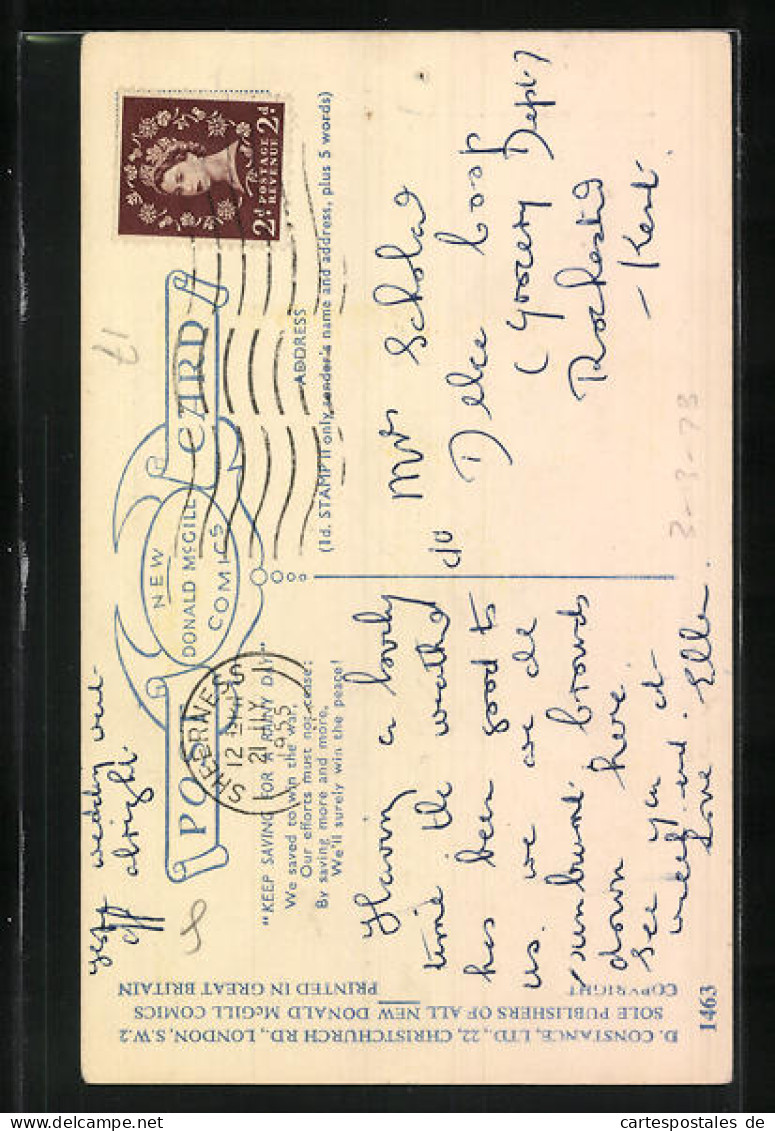 Geoff wedding went
off alright.
POST CARD
NEW
DONALD McGILL
COMICS
SHEERNESS
12
21 JLY
1955
2d POSTAGE REVENUE 2d
"KEEP SAVING FOR A RAINY DAY"
We saved to win the war,
Our efforts must not cease;
By saving more and more,
We'll surely win the peace!
Having a lovely
time the weather
has been good to
us. we are all
sunburnt. Crowds
down here.
See you at
week-end.
Love Ella.
ADDRESS
(1d. STAMP if only sender's name and address, plus 5 words)
Mrs Scholar
c/o Delce Coop
(Grocery Dept.)
Rochester
- Kent.
17
3-3-73
D. CONSTANCE, LTD., 22, CHRISTCHURCH RD., LONDON, S.W.2
SOLE PUBLISHERS OF ALL NEW DONALD McGILL COMICS
COPYRIGHT PRINTED IN GREAT BRITAIN
1463
cartespostales de